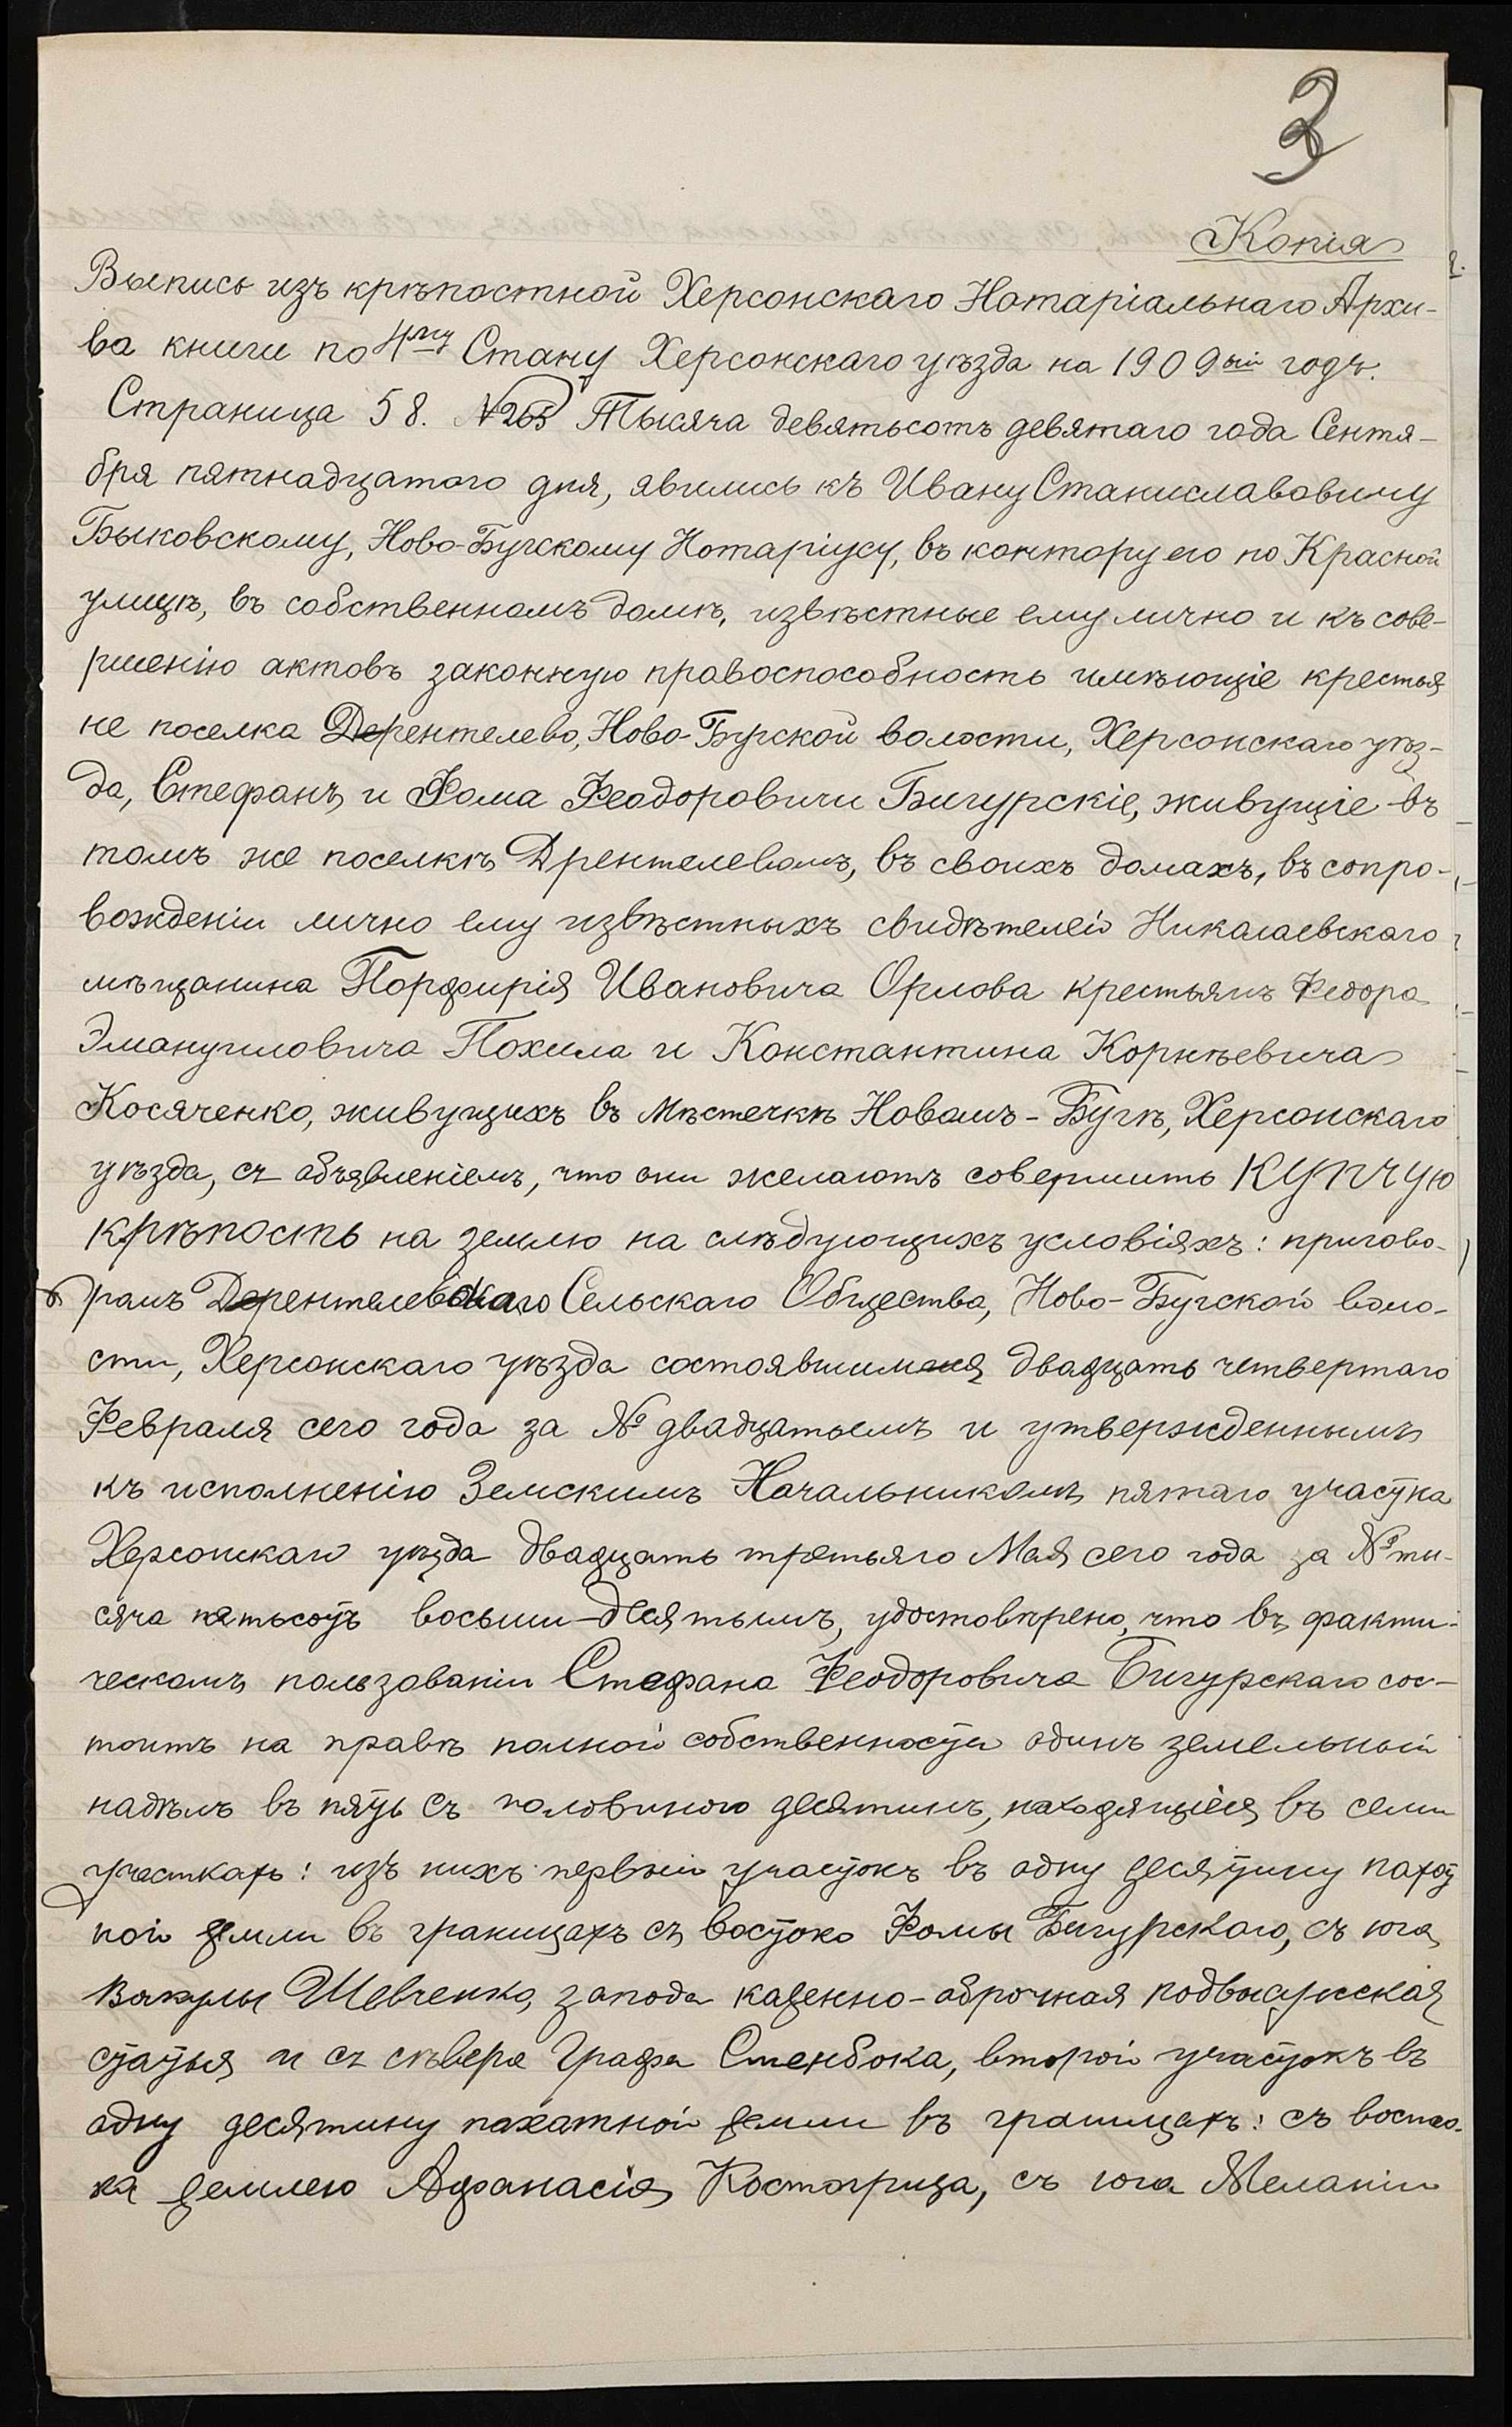 3
Копія
Выпись изъ крѣпостной Херсонскаго Нотаріальнаго Архи-
ва книги по 4му Стану Херсонскаго уѣзда на 1909ый годъ.
Страница 58. №265 Тысяча девятьсотъ девятаго года Сентя-
бря пятнадцатого дня, явились къ Ивану Станиславовичу
Быковскому, Ново-Бугскому Нотаріусу, въ контору его по Красной
улицѣ, въ собственномъ домѣ, извѣстные ему лично и къ сове-
ршенію актовъ законную правоспособность имѣющіе крестья
не поселка Дерентелево, Ново-Бугской волости, Херсонскаго уѣз-
да, Стефанъ и Фома Феодоровичи Бигурскіе, живущіе въ
томъ же поселкѣ Дрентелевомъ, въ своихъ домахъ, въ сопро-
вожденіи лично ему извѣстныхъ свидѣтелей Николаевскаго
мѣщанина Порфирія Ивановича Орлова крестьянъ Федора
Эмануиловича Похила и Константина Корнѣевича
Косяченко, живущихъ въ Мѣстечкѣ Новомъ-Бугѣ, Херсонскаго
уѣзда, съ объявленіемъ, что они желаютъ совершить купчую
крѣпость на землю на слѣдующихъ условіяхъ: пригово-
ромъ Дерентелевскаго Сельскаго Общества, Ново-Бугской воло-
сти, Херсонскаго уѣзда состоявшимся двадцать четвертаго
Февраля сего года за № двадцатымъ и утвержденнымъ
къ исполненію Земскимъ Начальникомъ пятаго участка
Херсонскаго уѣзда двадцать третьяго Мая сего года за № ты-
сяча пятьсотъ восьмидесятымъ, удостовѣрено, что въ факти-
ческомъ пользованіи Стефана Феодоровича Бигурскаго сос-
тоитъ на правѣ полной собственности одинъ земельный
надѣлъ въ пять съ половиною десятинъ, находящіеся въ семи
участкахъ: изъ нихъ первый участокъ въ одну десятину пахот
ной земли въ границахъ съ востока Фомы Бигурскаго, съ юга
Вакулы Шевченко, запода казенно-оброчная подвысунская
статья и съ сѣвера Графа Стенбока, второй участокъ въ
одну десятину пахатной земли въ границахъ: съ восто-
ка землею Афанасія Костогриза, съ юга Меланіи